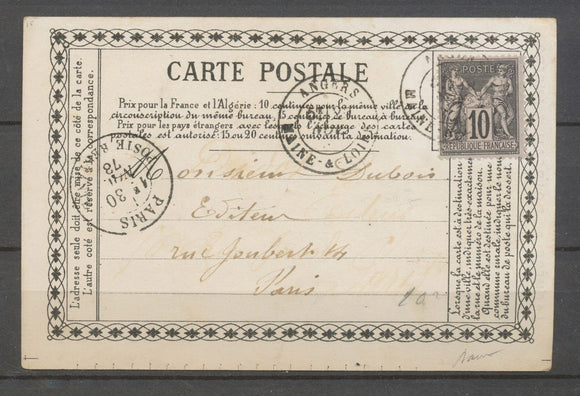 CARTE POSTALE
Prix pour la France et l'Algérie: 10 centimes pour la même ville ou la
circonscription du même bureau, 15 centimes de bureau à bureau.
Prix pour les pays étrangers avec lesquels l'échange des cartes
postales est autorisé: 15 ou 20 centimes suivant la destination.
POSTE
10
REPUBLIQUE FRANÇAISE
ANGERS
MAINE-&-LOIRE
PARIS
30
78
L'adresse seule doit être mise de ce côté de la carte.
L'autre côté est réservé à la correspondance.
Monsieur Dubois
Editeur
rue Joubert 14
Paris
Lorsque la carte est à destination
d'une ville, indiquer très-exactement
la rue et le numéro de la maison.
Quand elle est destinée pour une
commune rurale, indiquer le nom
du bureau de poste qui la dessert.